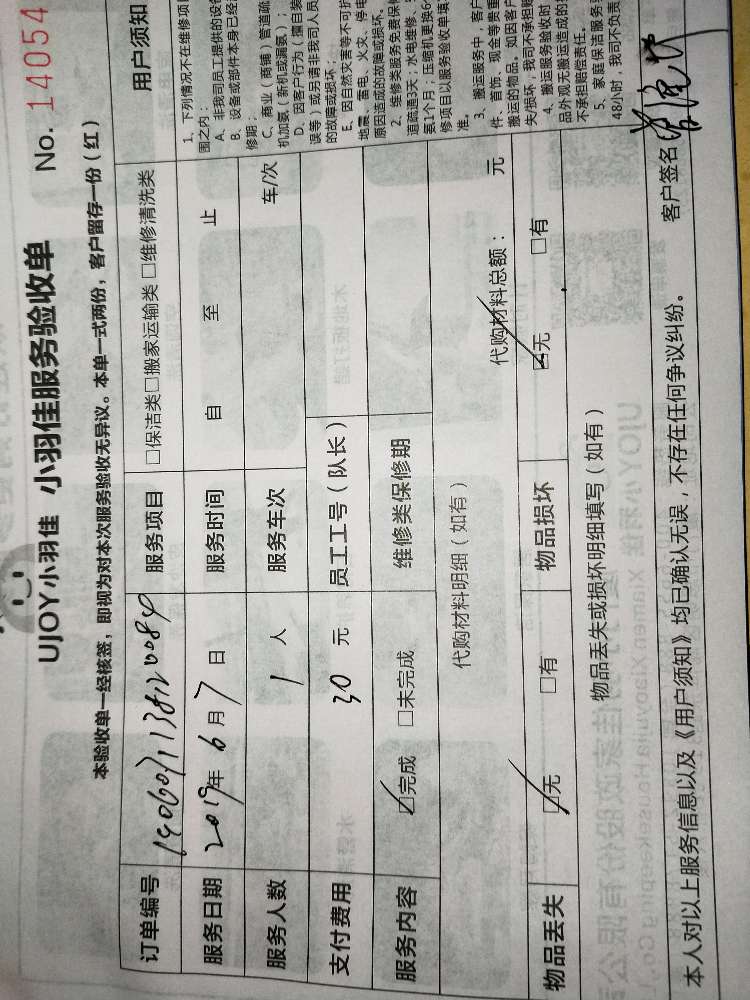 UJOY小羽佳 小羽佳服务验收单 No. 14054
本验收单一经核签，即视为对本次服务验收无异议。本单一式两份，客户留存一份（红）
订单编号 服务项目 □保洁类□搬家运输类□维修清洗类
服务日期 2019年6月7日 服务时间 自 至 止
服务人数 1 人 服务车次 车/次
支付费用 30 元 员工工号（队长）
服务内容 ☑完成 □未完成 维修类保修期
代购材料明细（如有） 代购材料总额： 元
物品丢失 ☑无 □有 物品损坏 ☑无 □有
物品丢失或损坏明细填写（如有）
本人对以上服务信息以及《用户须知》均已确认无误，不存在任何争议纠纷。 客户签名
用户须知
1、下列情况不在维修项
围之内：
A、非我司员工提供的设备
B、设备或部件本身已经
修期；
C、商业（商铺）管道疏
机加氨（新机或漏氨）；
D、因客户行为（擅自装
误等）或另请非我司人员
的故障或损坏；
E、因自然灾害等不可抗
地震、雷电、火灾、停电
原因造成的故障或损坏。
2、维修类服务免费保修
道疏通3天；水电维修、
氨1个月；压缩机更换6
修项目以服务验收单填
准。
3、搬运服务中，客户
件、首饰、现金等贵重
搬运的物品。如因客户
失/损坏，我司不承担赔
4、搬运服务验收时
品外观无搬运造成的
不承担赔偿责任。
5、家庭保洁服务
48小时，我司不负责